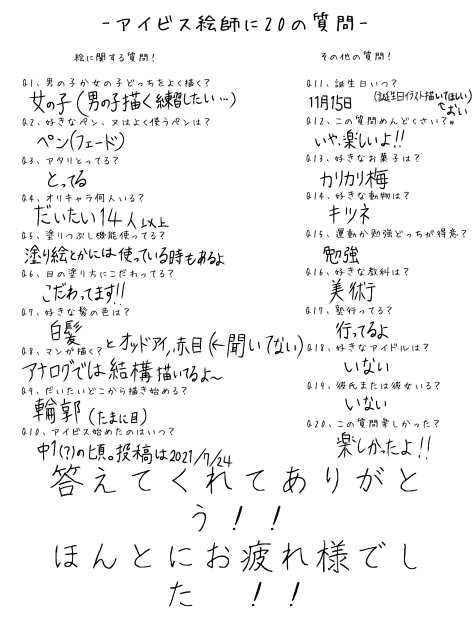 -アイビス絵師に20の質問-
絵に関する質問!
Q1、男の子か女の子どっちをよく描く?
女の子(男の子描く練習したい…)
Q2、好きなペン、又はよく使うペンは?
ペン(フェード)
Q3、アタリとってる?
とってる
Q4、オリキャラ何人いる?
だいたい14人以上
Q5、塗りつぶし機能使ってる?
塗り絵とかには使っている時もあるよ
Q6、目の塗り方にこだわってる?
こだわってます!!
Q7、好きな髪の色は?
白髪とオッドアイ,赤目(←聞いてない)
Q8、マンガ描く?
アナログでは結構描いてるよ~
Q9、だいたいどこから描き始める?
輪郭(たまに目)
Q10、アイビス始めたのはいつ?
中1(?)の頃。投稿は2021/7/24
その他の質問!
Q11、誕生日いつ?
11月15日(誕生日イラスト描いてほしい)
↑おい
Q12、この質問めんどくさい?w
いや、楽しいよ!!
Q13、好きなお菓子は?
カリカリ梅
Q14、好きな動物は?
キツネ
Q15、運動か勉強どっちが得意?
勉強
Q16、好きな教科は?
美術
Q17、塾行ってる?
行ってるよ
Q18、好きなアイドルは?
いない
Q19、彼氏または彼女いる?
いない
Q20、この質問楽しかった?
楽しかったよ!!
答えてくれてありがと
う!!
ほんとにお疲れ様でし
た !!